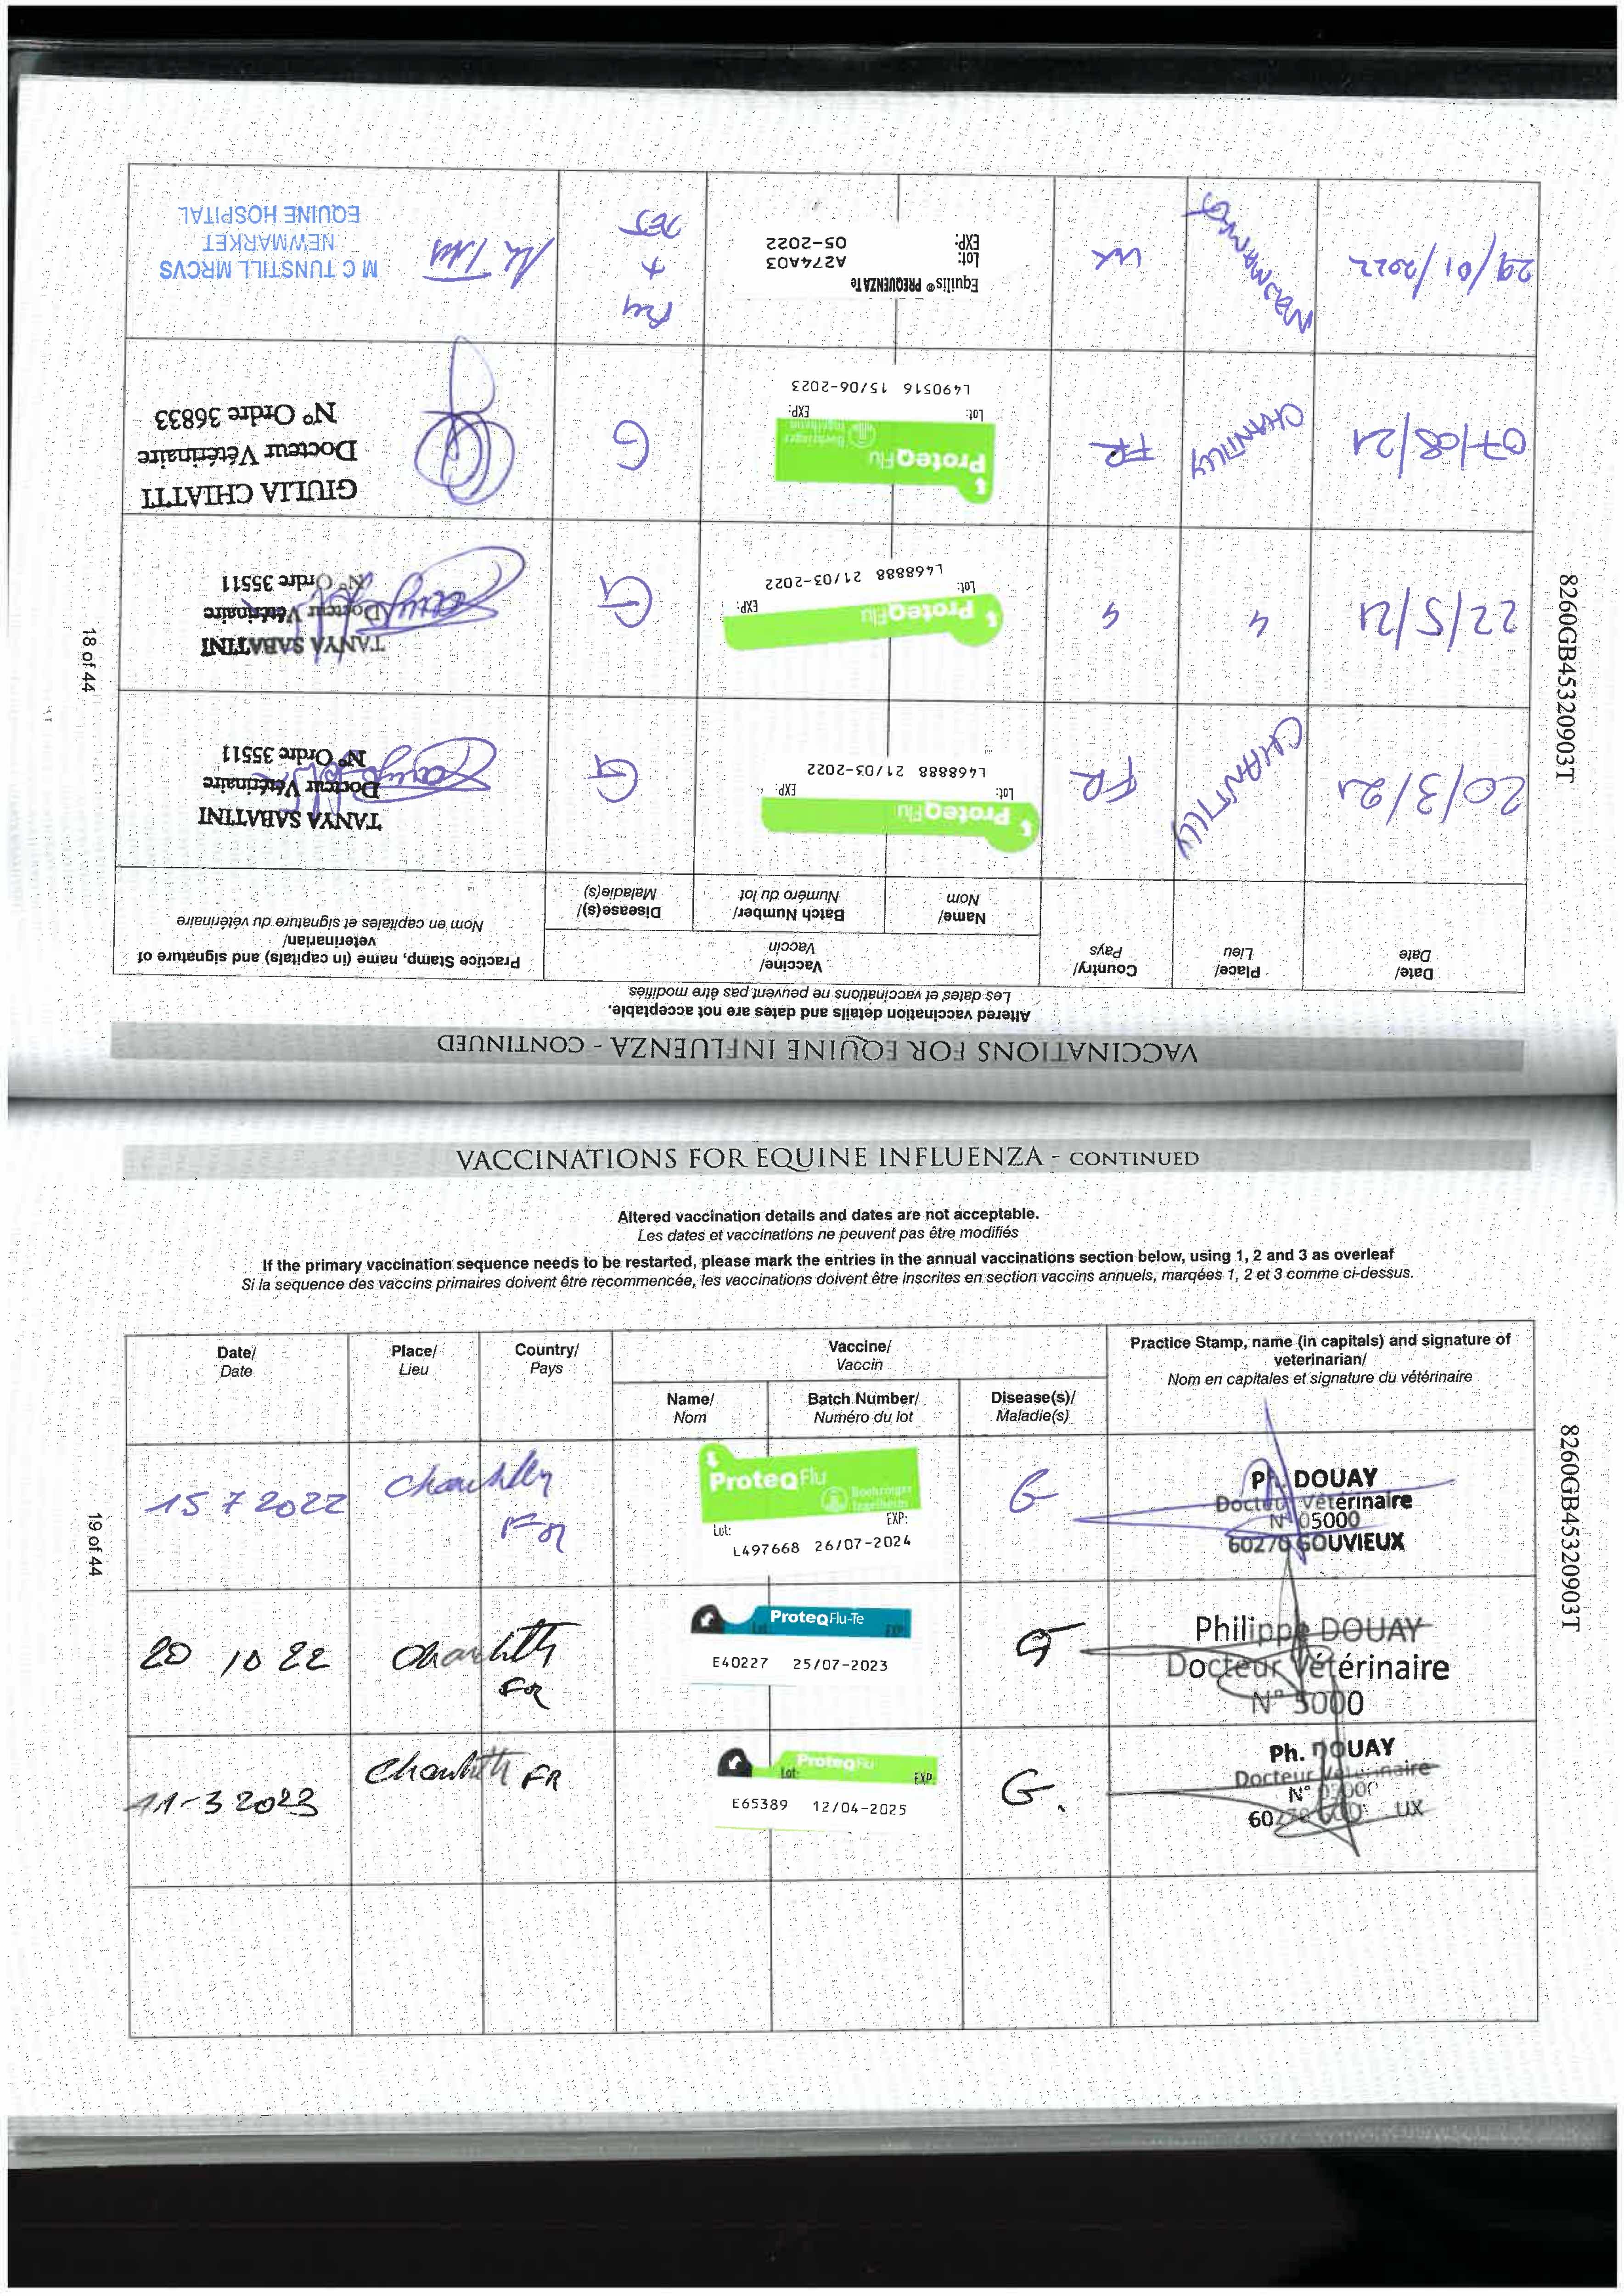 VACCINATIONS FOR EQUINE INFLUENZA - CONTINUED
Altered vaccination details and dates are not acceptable.
Les dates et vaccinations ne peuvent pas être modifiés
Date/
Date
Place/
Lieu
Country/
Pays
Vaccine/
Vaccin
Name/
Nom
Batch Number/
Numéro du lot
Disease(s)/
Maladie(s)
Practice Stamp, name (in capitals) and signature of
veterinarian/
Nom en capitales et signature du vétérinaire
20/3/21
CHANTILLY
FR
ProteqFlu
Lot: EXP:
L468888 21/03-2022
G
TANYA SABATTINI
Docteur Vétérinaire
N° Ordre 35511
22/5/21
ProteqFlu
Lot: EXP:
L468888 21/03-2022
G
TANYA SABATTINI
Docteur Vétérinaire
N° Ordre 35511
07/08/21
CHANTILLY
FR
ProteqFlu
Boehringer
Ingelheim
Lot: EXP:
L490516 15/06-2023
G
GIULIA CHIATTI
Docteur Vétérinaire
N° Ordre 36833
29/01/2022
UK
Equilis® PREQUENZA Te
Lot: A274A03
EXP: 05-2022
+
TET
M C TUNSTILL MRCVS
NEWMARKET
EQUINE HOSPITAL
18 of 44
8260GB45320903T
VACCINATIONS FOR EQUINE INFLUENZA - CONTINUED
Altered vaccination details and dates are not acceptable.
Les dates et vaccinations ne peuvent pas être modifiés
If the primary vaccination sequence needs to be restarted, please mark the entries in the annual vaccinations section below, using 1, 2 and 3 as overleaf
Si la sequence des vaccins primaires doivent être recommencée, les vaccinations doivent être inscrites en section vaccins annuels, marqées 1, 2 et 3 comme ci-dessus.
Date/
Date
Place/
Lieu
Country/
Pays
Vaccine/
Vaccin
Name/
Nom
Batch Number/
Numéro du lot
Disease(s)/
Maladie(s)
Practice Stamp, name (in capitals) and signature of
veterinarian/
Nom en capitales et signature du vétérinaire
15 7 2022
Chantilly
FR
ProteqFlu
Boehringer
Ingelheim
Lot: EXP:
L497668 26/07-2024
G
Ph. DOUAY
Docteur Vétérinaire
N° 05000
60270 GOUVIEUX
20 10 22
FR
ProteqFlu-Te
Lot: EXP:
E40227 25/07-2023
G
Philippe DOUAY
Docteur Vétérinaire
N° 5000
11-3 2023
FR
ProteqFlu
Lot: EXP:
E65389 12/04-2025
G.
Ph. DOUAY
Docteur Vétérinaire
19 of 44
8260GB45320903T